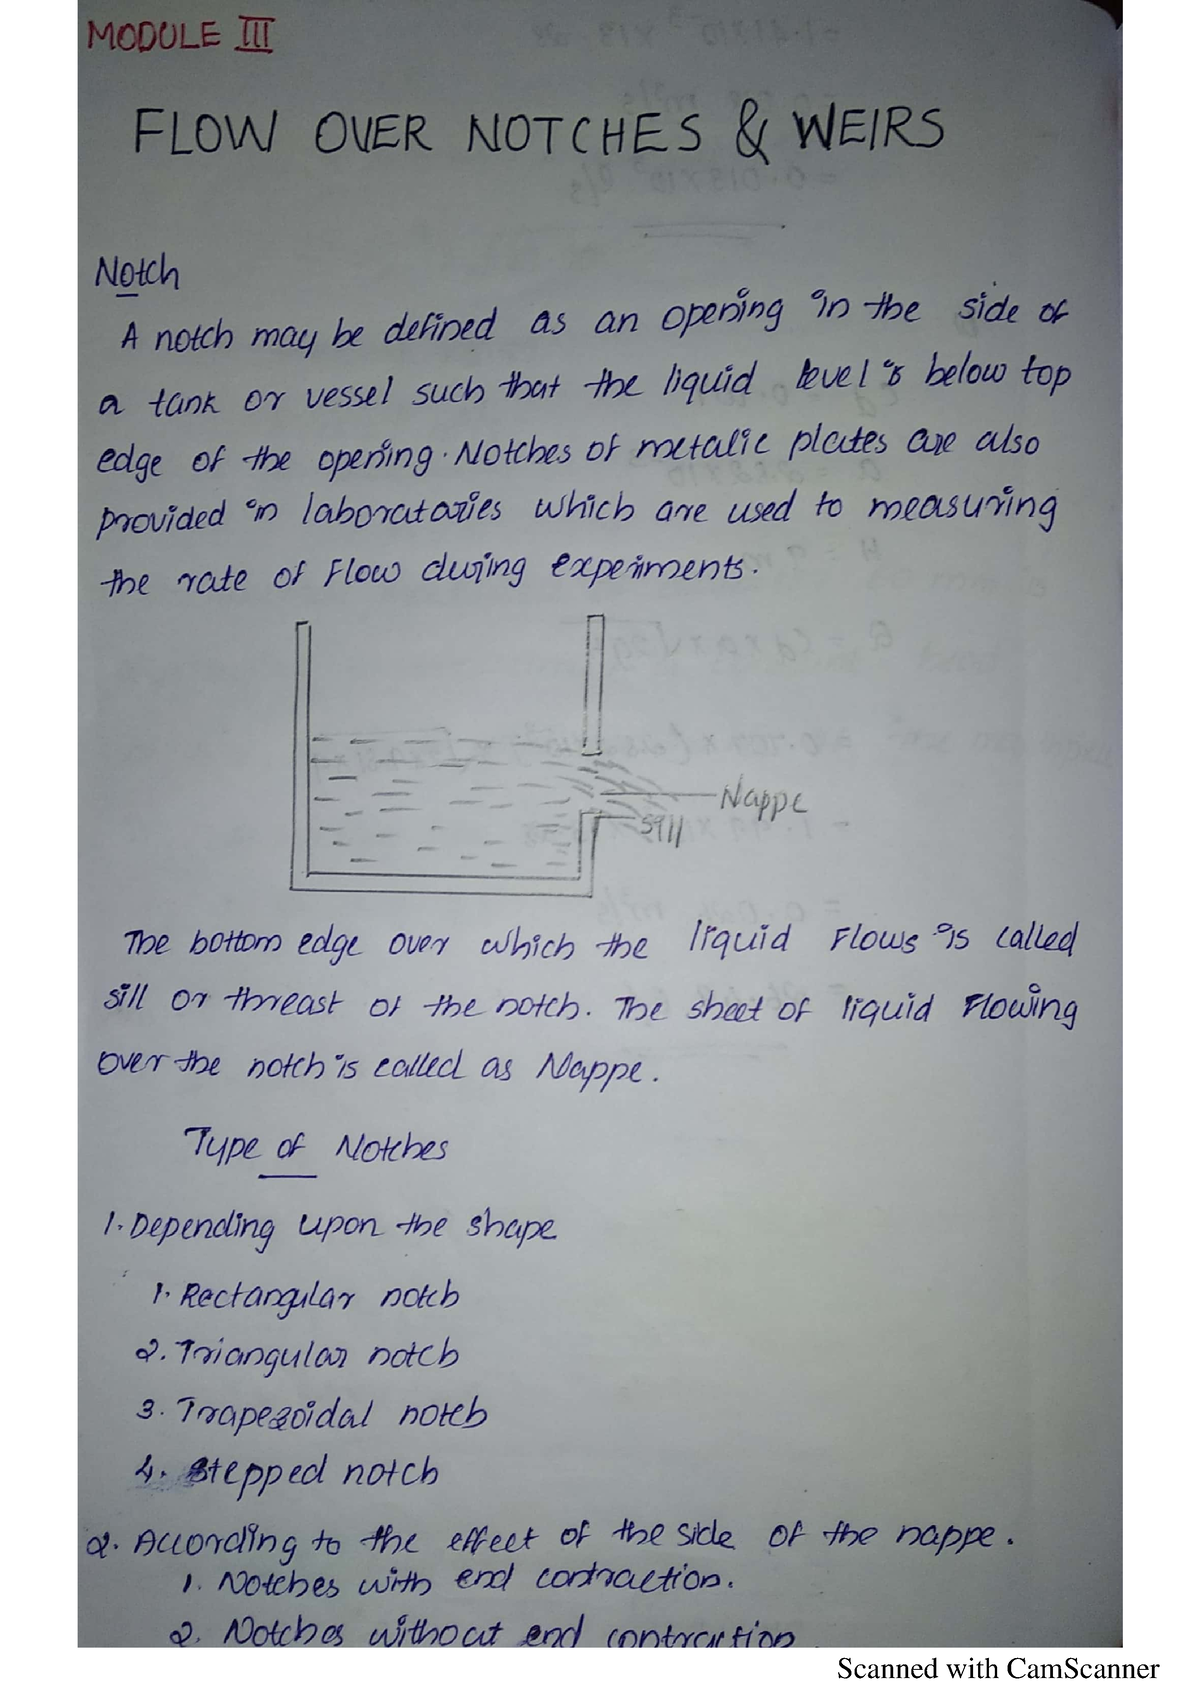 MODULE III
FLOW OVER NOTCHES & WEIRS
Notch
A notch may be defined as an opening in the side of
a tank or vessel such that the liquid level is below top
edge of the opening. Notches of metalic plates are also
provided in laborataries which are used to measuring
the rate of Flow during experiments.
Nappe
Sill
The bottom edge over which the liquid Flows is called
sill or threast of the notch. The sheet of liquid Flowing
over the notch is called as Nappe.
Type of Notches
1. Depending upon the shape
1. Rectangular notch
2. Triangular notch
3. Trapezoidal notch
4. Stepped notch
2. According to the effect of the side of the nappe.
1. Notches with end contraction.
2. Notches without end contraction
Scanned with CamScanner